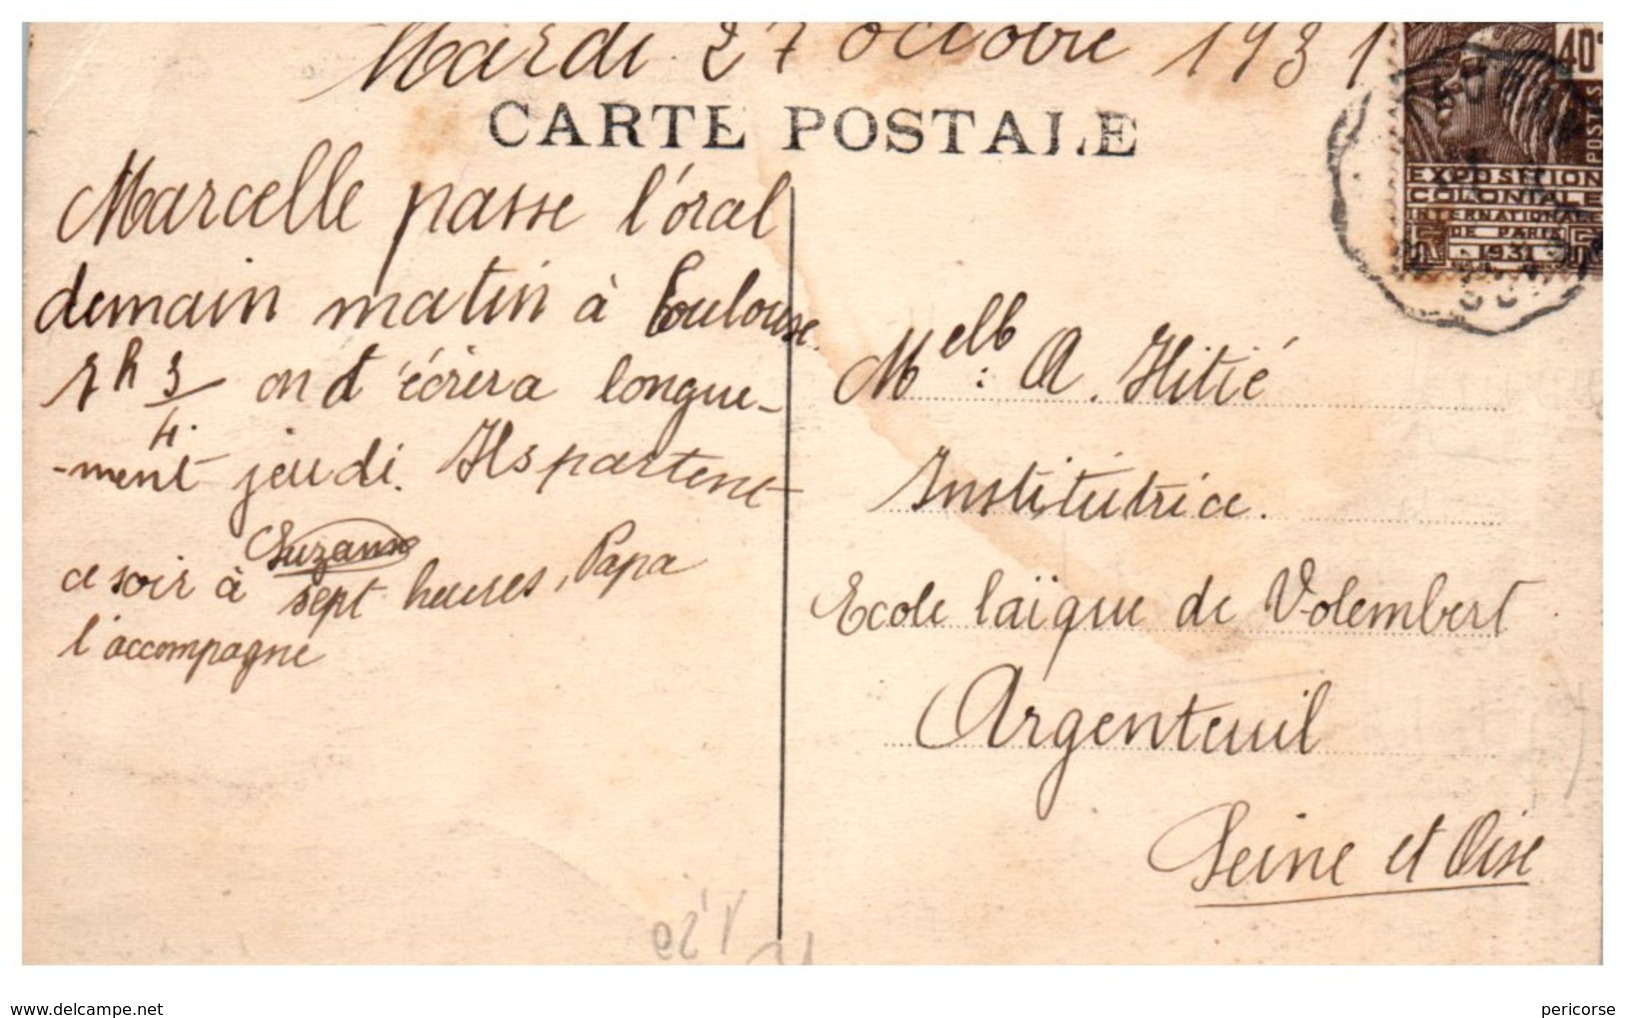 Mardi 27 octobre 1931
CARTE POSTALE
40c
POSTES
EXPOSITION
COLONIALE
INTERNATIONALE
DE PARIS
1931
Marcelle passe l'oral
demain matin à Toulouse.
h 3/4. on t'écrira longue-
-ment jeudi. Ils partent
Suzanne
ce soir à sept heures, Papa
l'accompagne
Melle: A. Hitié
Institutrice.
Ecole laïque de Volembert
Argenteuil
Seine et Oise
www.delcampe.net
pericorse